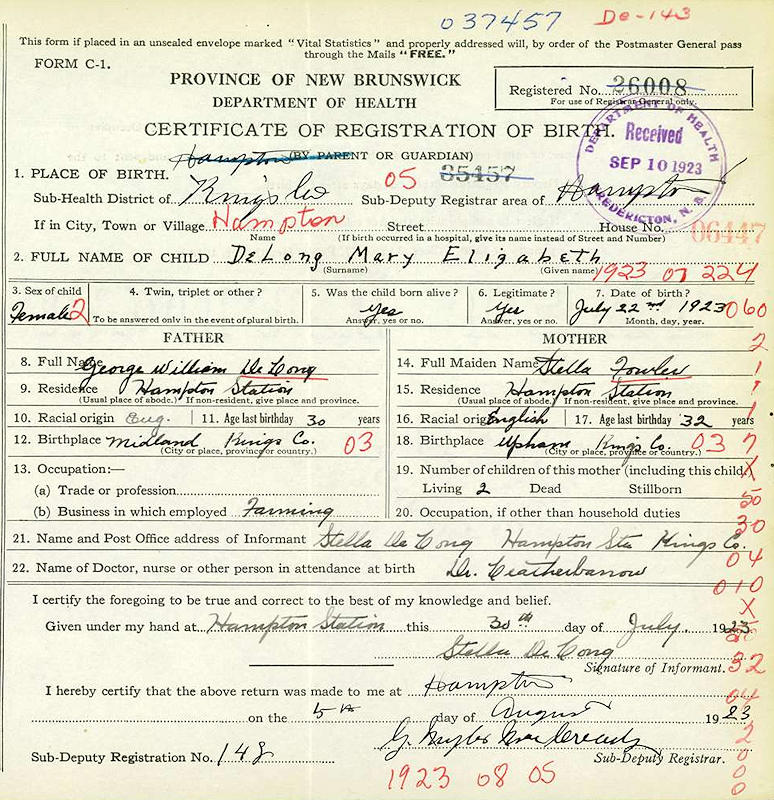 037457 De-143
This form if placed in an unsealed envelope marked "Vital Statistics" and properly addressed will, by order of the Postmaster General pass
through the Mails "FREE."
FORM C-1.
PROVINCE OF NEW BRUNSWICK
DEPARTMENT OF HEALTH
Registered No. 26008
For use of Registrar General only.
CERTIFICATE OF REGISTRATION OF BIRTH.
(BY PARENT OR GUARDIAN)
Hampton
DEPARTMENT OF HEALTH
Received
SEP 10 1923
FREDERICTON, N. B.
1. PLACE OF BIRTH. 05 35457
Sub-Health District of Kings Co Sub-Deputy Registrar area of Hampton
If in City, Town or Village Hampton Street House No. 06447
Name (If birth occurred in a hospital, give its name instead of Street and Number)
2. FULL NAME OF CHILD DeLong Mary Elizabeth
(Surname) (Given name) 1923 07 224
3. Sex of child 4. Twin, triplet or other? 5. Was the child born alive? 6. Legitimate? 7. Date of birth?
Female 2 Yes Yes July 22nd 1923 060
To be answered only in the event of plural birth. Answer, yes or no. Answer, yes or no. Month, day, year.
FATHER MOTHER 2
8. Full Name George William De Long 14. Full Maiden Name Stella Fowler 1
9. Residence Hampton Station 15. Residence Hampton Station 1
(Usual place of abode.) If non-resident, give place and province. (Usual place of abode) If non-resident, give place and province.
10. Racial origin Eng. 11. Age last birthday 30 years 16. Racial origin English 17. Age last birthday 32 years 1
12. Birthplace Midland Kings Co. 03 18. Birthplace Upham Kings Co. 03 7
(City or place, province or country.) (City or place, province or country.)
13. Occupation:— 19. Number of children of this mother (including this child) X
(a) Trade or profession Living 2 Dead Stillborn 50
(b) Business in which employed Farming 20. Occupation, if other than household duties 30
21. Name and Post Office address of Informant Stella De Long Hampton Sta Kings Co.
04
22. Name of Doctor, nurse or other person in attendance at birth Dr.
010
I certify the foregoing to be true and correct to the best of my knowledge and belief. X
Given under my hand at Hampton Station this 30th day of July. 1923
Stella De Long
Signature of Informant. 32
I hereby certify that the above return was made to me at Hampton 04
on the 5th day of August 1923
2
Sub-Deputy Registration No. 148 G. Sub-Deputy Registrar. 0
1923 08 05 0